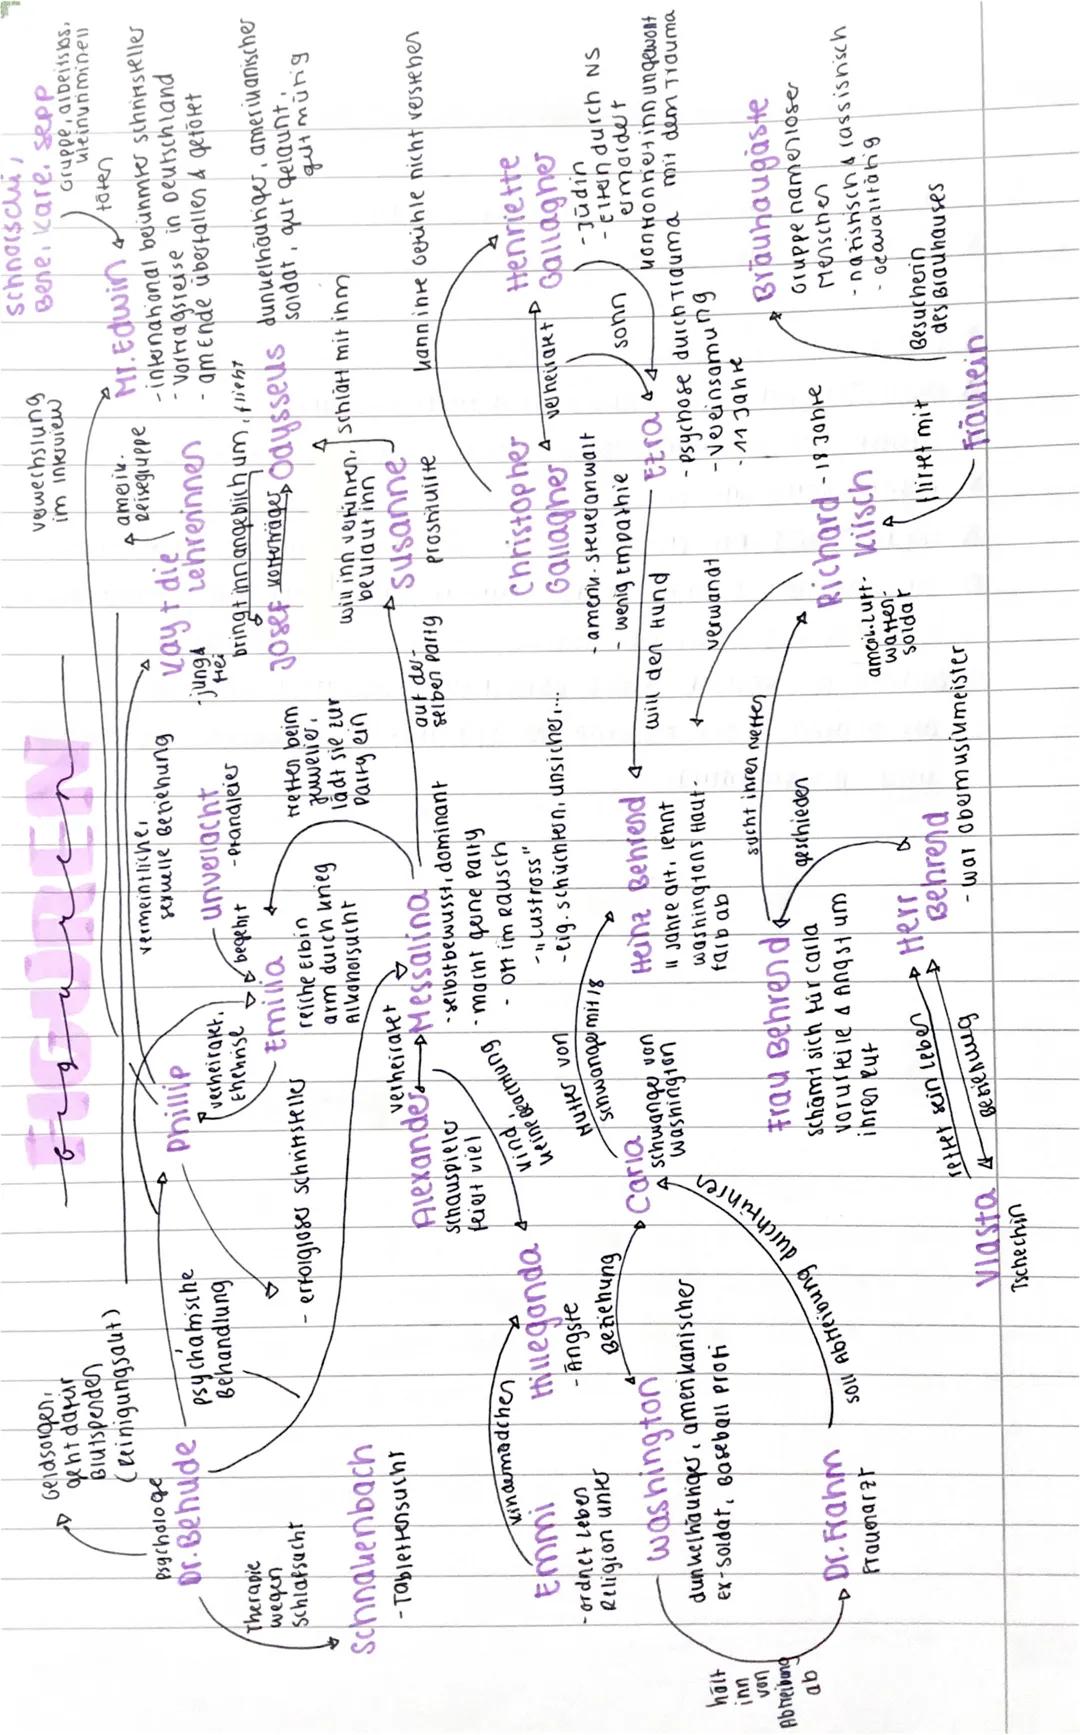 FIGUREN
Figuren
Geldsorgen,
geht dafür
Blutspenden
(Reinigungsakt)
Psychologe
Dr. Behude
psychatrische
Behandlung
Therapie
wegen
Schlafsucht
Schnakenbach
- Tablettensucht
Phillip
verheiratet,
Ehekrise
- erfolgloser Schriftsteller
vermeintliche,
sexuelle Beziehung
Verwechslung
im Interview
Emilia
reiche Erbin
arm durch Krieg
Alkoholsucht
begehrt
Unverlacht
- Prandleier
treffen beim
Juwelier,
lädt sie zur
Party ein
Kay + die
Lehrerinnen
- jung &
frei
amerik.
Reisegruppe
Mr. Edwin
- international berühmter Schriftsteller
- Vortragsreise in Deutschland
- am Ende überfallen & getötet
Schnorschi,
Bene, Kare, Sepp
Gruppe, arbeitslos,
kleinkriminell
töten
bringt ihn angeblich um, flieht
Josef
Kofferträger
Odysseus
dunkelhäutiger, amerikanischer
Soldat, gut gelaunt,
gutmütig
will ihn verführen,
beklaut ihn
schläft mit ihm
Susanne
prostituirte
auf der-
selben Party
Alexander
verheiratet
Schauspieler
feiert viel
Messalina
- selbstbewusst, dominant
- macht gerne Party
- oft im Rausch
- "Lustross"
- eig. schüchtern, unsicher,...
Kind,
keine Beachtung
Emmi
- ordnet Leben
Religion unter
Kindermädchen
Hillegonda
- Ängste
Christopher
Gallagher
- amerik. Steueranwalt
- wenig Empathie
verheiratet
kann ihre Gefühle nicht verstehen
Henriette
Gallagher
- Jüdin
- Eltern durch NS
ermordet
Sohn
konfrontiert ihn ungewollt
mit dem Trauma
Ezra
- psychose durch Trauma
- Vereinsamung
- 11 Jahre
will den Hund
Washington
dunkelhäutiger, amerikanischer
ex-Soldat, Baseball profi
Beziehung
Carla
schwanger von
Washington
Mutter von
schwanger mit 18
Heinz Behrend
11 Jahre alt, lehnt
Washingtons Haut-
farb ab
verwandt
hält
ihn
von
Abtreibung
ab
Dr. Frahm
Frauenarzt
soll Abtreibung durchführen
Frau Behrend
schämt sich für Carla
Vorurteile & Angst um
ihren Ruf
sucht ihren Neffen
geschieden
Richard
Kirsch
- 18 Jahre
amerik. Luft-
waffen-
soldat
flirtet mit
Fräulein
Besucherin
des Brauhauses
Bräuhaugäste
Gruppe namenloser
Menschen
- nazistisch & rassistisch
- Gewalttätig
Herr
Behrend
- war Obermusikmeister
rettet sein Leben
Beziehung
Vlasta
Tschechin